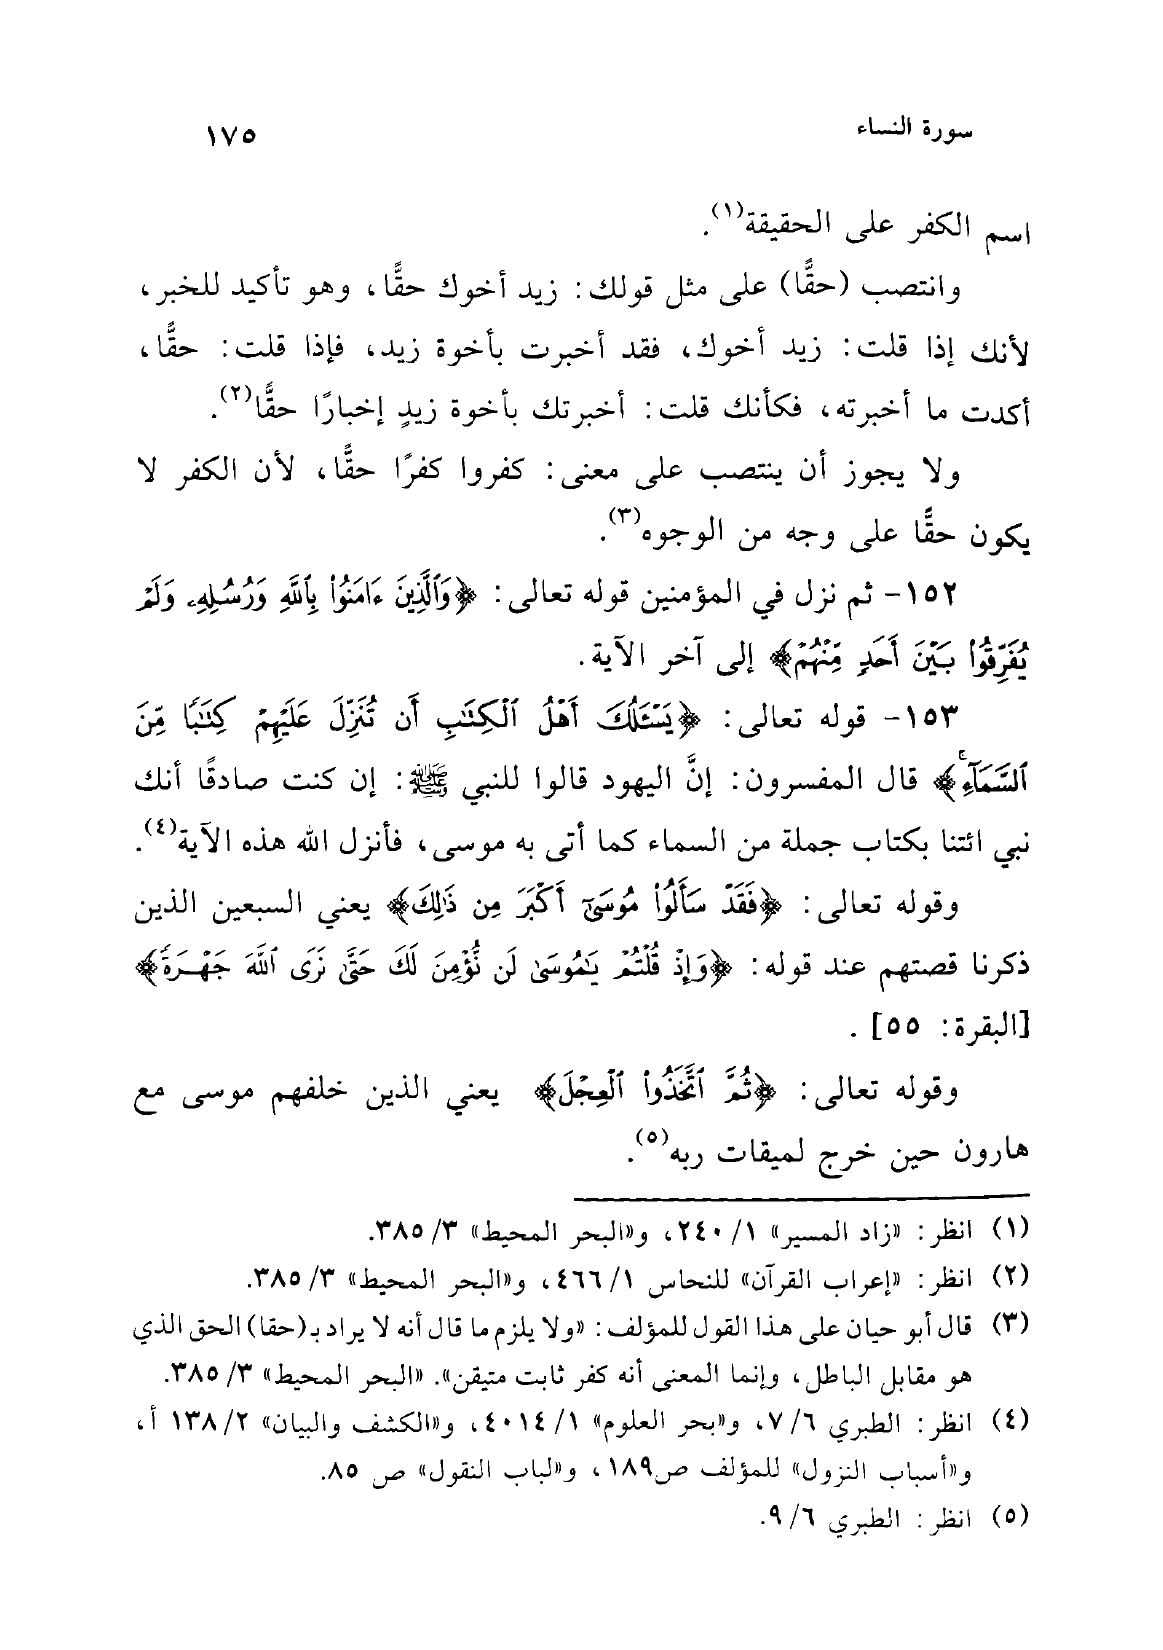 سورة النساء ١٧٥
اسم الكفر على الحقيقة(١).
وانتصب (حقًّا) على مثل قولك: زيد أخوك حقًّا، وهو تأكيد للخبر،
لأنك إذا قلت: زيد أخوك، فقد أخبرت بأخوة زيد، فإذا قلت: حقًّا،
أكدت ما أخبرته، فكأنك قلت: أخبرتك بأخوة زيدٍ إخبارًا حقًّا(٢).
ولا يجوز أن ينتصب على معنى: كفروا كفرًا حقًّا، لأن الكفر لا
يكون حقًّا على وجه من الوجوه(٣).
١٥٢- ثم نزل في المؤمنين قوله تعالى: ﴿وَٱلَّذِينَ ءَامَنُوا۟ بِٱللَّهِ وَرُسُلِهِۦ وَلَمْ
يُفَرِّقُوا۟ بَيْنَ أَحَدٍ مِّنْهُمْ﴾ إلى آخر الآية.
١٥٣- قوله تعالى: ﴿يَسْـَٔلُكَ أَهْلُ ٱلْكِتَٰبِ أَن تُنَزِّلَ عَلَيْهِمْ كِتَٰبًا مِّنَ
ٱلسَّمَآءِ ۚ﴾ قال المفسرون: إنَّ اليهود قالوا للنبي ﷺ: إن كنت صادقًا أنك
نبي ائتنا بكتاب جملة من السماء كما أتى به موسى، فأنزل الله هذه الآية(٤).
وقوله تعالى: ﴿فَقَدْ سَأَلُوا۟ مُوسَىٰٓ أَكْبَرَ مِن ذَٰلِكَ﴾ يعني السبعين الذين
ذكرنا قصتهم عند قوله: ﴿وَإِذْ قُلْتُمْ يَٰمُوسَىٰ لَن نُّؤْمِنَ لَكَ حَتَّىٰ نَرَى ٱللَّهَ جَهْرَةً﴾
[البقرة: ٥٥] .
وقوله تعالى: ﴿ثُمَّ ٱتَّخَذُوا۟ ٱلْعِجْلَ﴾ يعني الذين خلفهم موسى مع
هارون حين خرج لميقات ربه(٥).
(١) انظر: «زاد المسير» ١/ ٢٤٠، و«البحر المحيط» ٣/ ٣٨٥.
(٢) انظر: «إعراب القرآن» للنحاس ١/ ٤٦٦، و«البحر المحيط» ٣/ ٣٨٥.
(٣) قال أبو حيان على هذا القول للمؤلف: «ولا يلزم ما قال أنه لا يراد بـ(حقا) الحق الذي
هو مقابل الباطل، وإنما المعنى أنه كفر ثابت متيقن». «البحر المحيط» ٣/ ٣٨٥.
(٤) انظر: الطبري ٦/ ٧، و«بحر العلوم» ١/ ٤٠١٤، و«الكشف والبيان» ٢/ ١٣٨ أ،
و«أسباب النزول» للمؤلف ص١٨٩، و«لباب النقول» ص ٨٥.
(٥) انظر: الطبري ٦/ ٩.